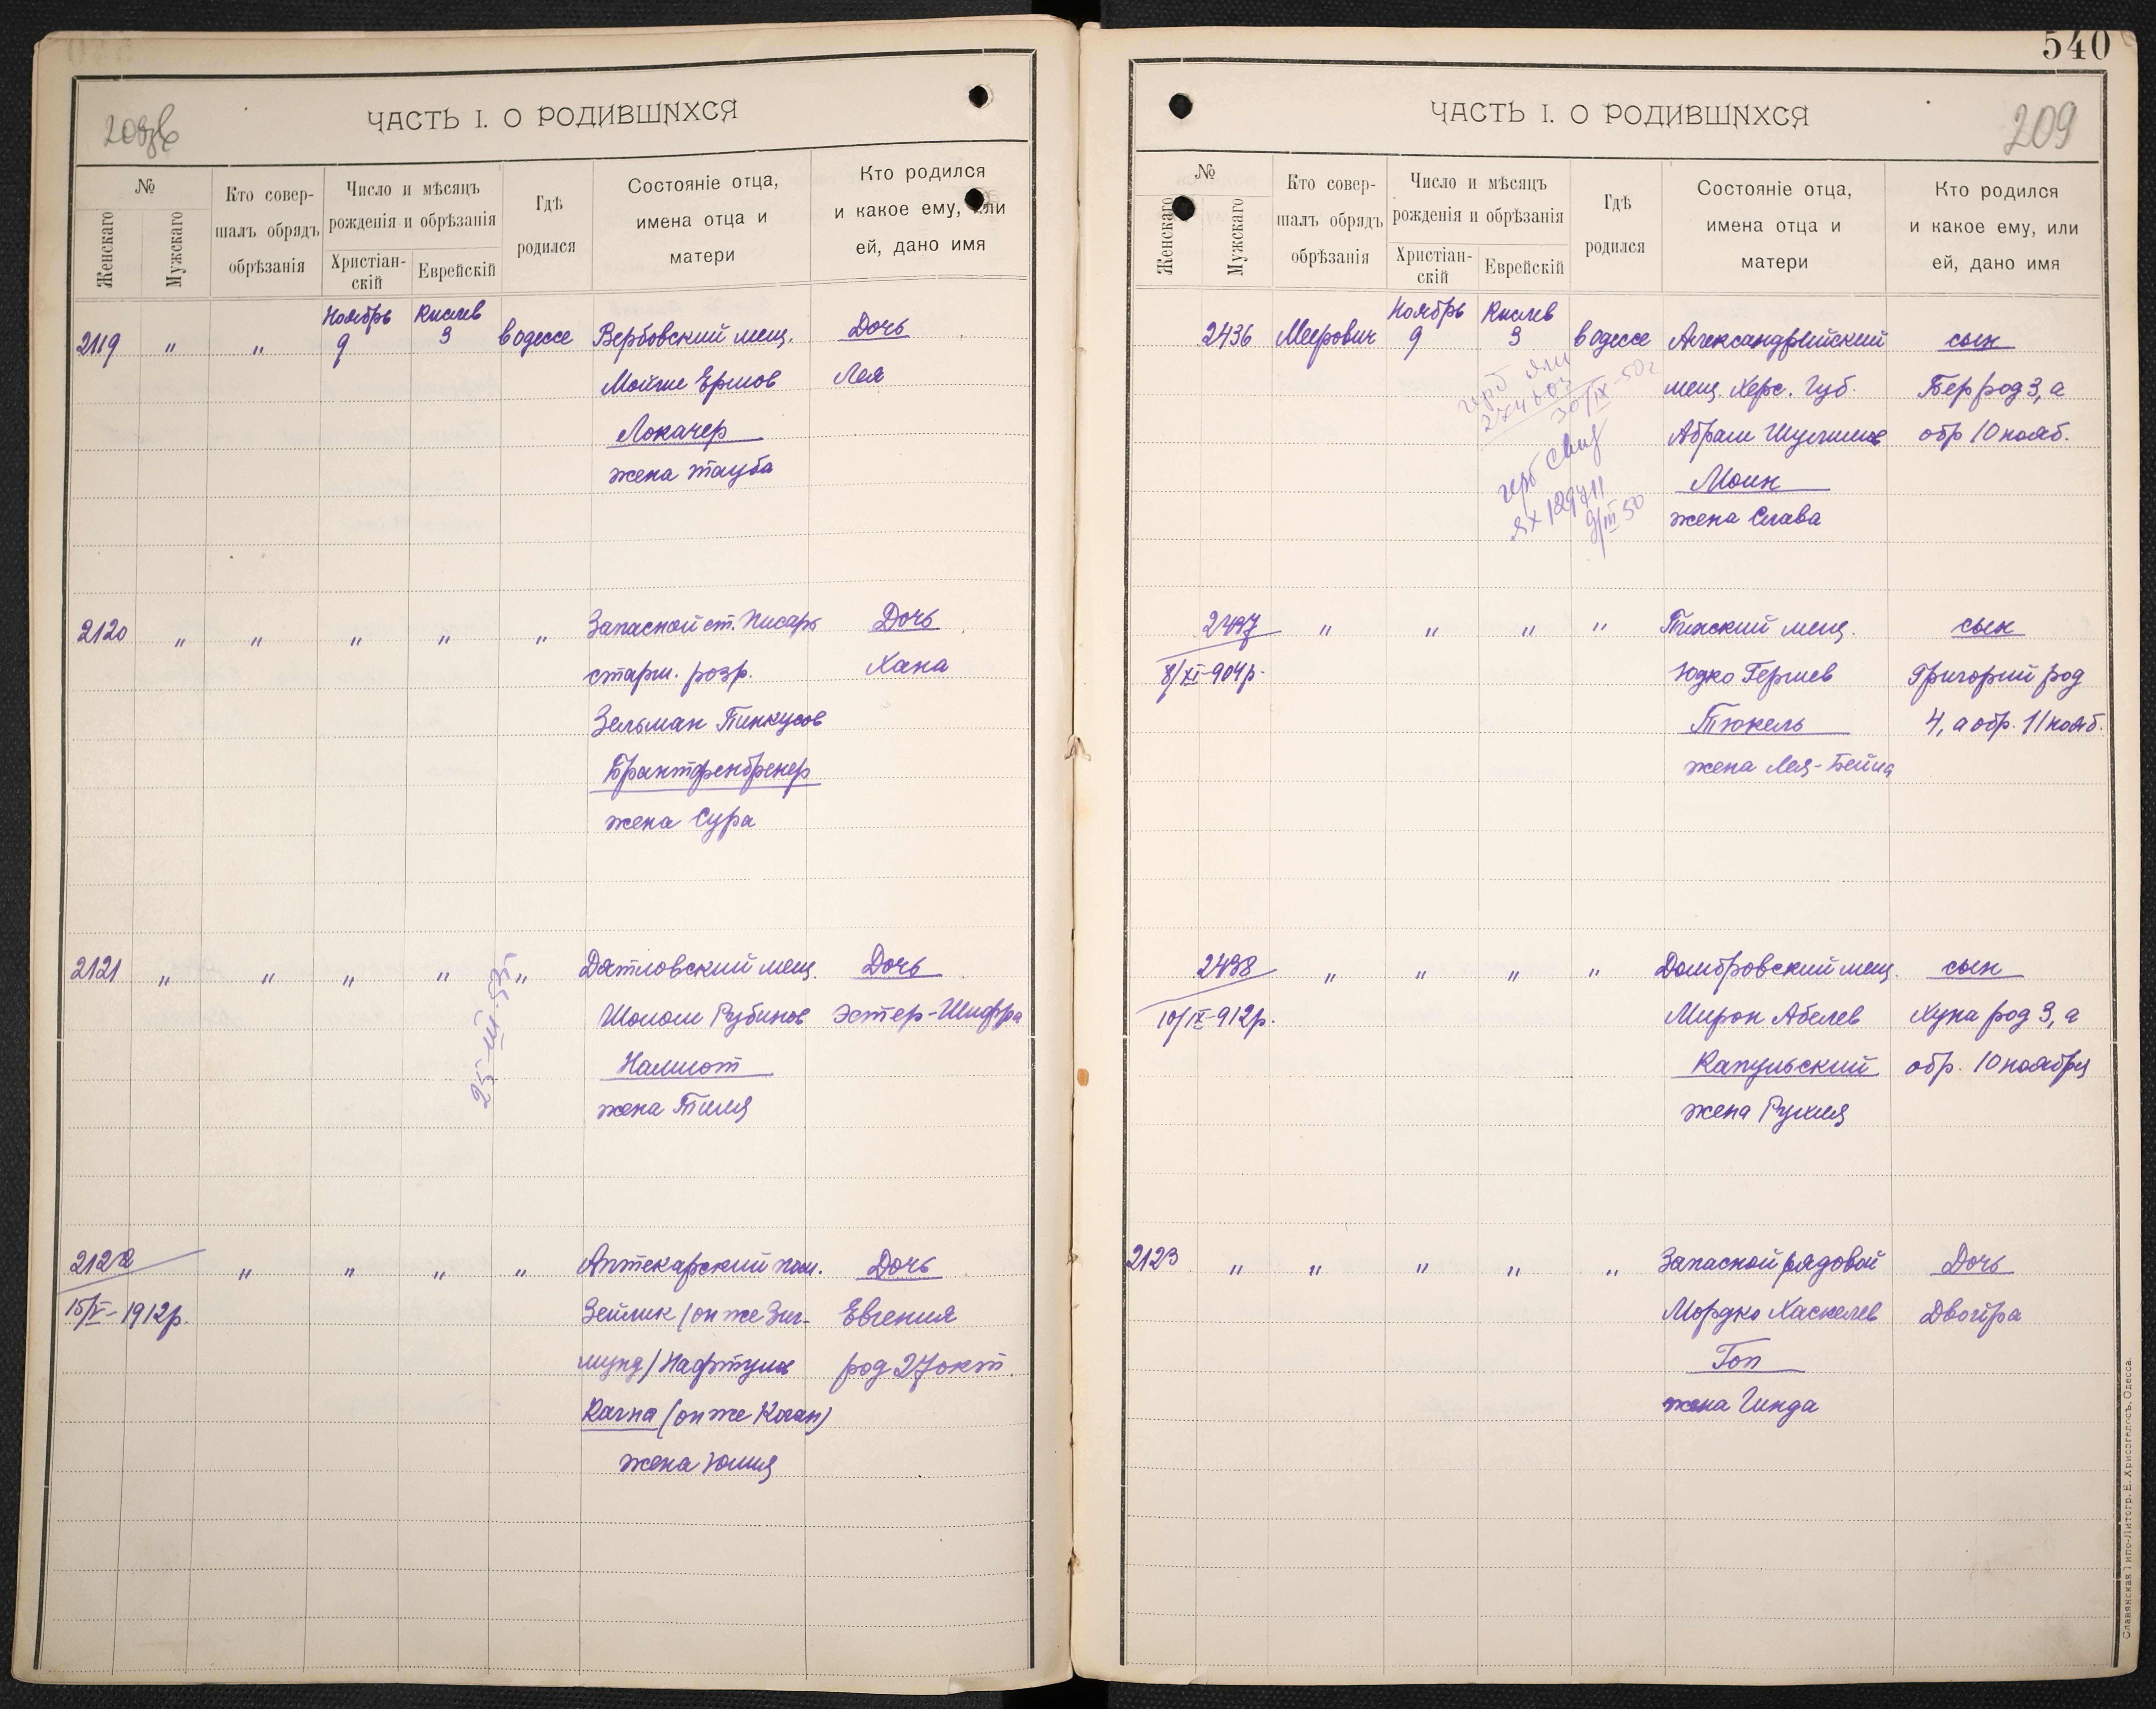 ЧАСТЬ I. О РОДИВШИХСЯ
№
Женскаго
Мужскаго
Кто совер-
шалъ обрядъ
обрѣзанія
Число и мѣсяцъ
рожденія и обрѣзанія
Христіан-
скій
Еврейскій
Гдѣ
родился
Состояніе отца,
имена отца и
матери
Кто родился
и какое ему, или
ей, дано имя
Ноябрь Кислев
2119 " " 9 3 в Одессе Вербовский мещ. Дочь
Мойше Ершов Лея
Локачер
жена Тауба
2120 " " " " " Запасной ст. Писарь Дочь
старш. розр. Хана
Зельман Пинкусов
Брантфенбренер
жена Сура
2121 " " " " " Дятловский мещ. Дочь
Шолом Рубинов Эстер-Шифра
Намиот
жена
25-III-53г.
2122 " " " " Аптекарский пом. Дочь
15/V-1912р. Зейлик (он же Зиг- Евгения
мунд) Нафтулов род 27 окт.
Кагна (он же Коган)
жена Юлия
540
ЧАСТЬ I. О РОДИВШИХСЯ
209
№
Женскаго
Мужскаго
Кто совер-
шалъ обрядъ
обрѣзанія
Число и мѣсяцъ
рожденія и обрѣзанія
Христіан-
скій
Еврейскій
Гдѣ
родился
Состояніе отца,
имена отца и
матери
Кто родился
и какое ему, или
ей, дано имя
Ноябрь Кислев
2436 Меерович 9 3 в Одессе Александрийский сын
мещ. Херс. Губ. Бер род 3, а
Абрам Шулимов обр 10 нояб.
Моин
жена Слава
30/IX-50г
9/III 50
2437 " " " " Пинский мещ. сын
8/XI-904р. Юдко Гершев Григорий род
Тюкель 4, а обр. 11 нояб.
жена Лея-Бейла
2438 " " " " Домбровский мещ. сын
10/IX-912р. Мирон Абелев Хуна род 3, а
Капульский обр. 10 ноября
жена Рухля
2123 " " " " " Запасной рядовой Дочь
Мордко Хаскелев Двойра
Гоп
жена Гинда
Славянская Типо-Литогр. Е. Хрисогелосъ. Одесса.